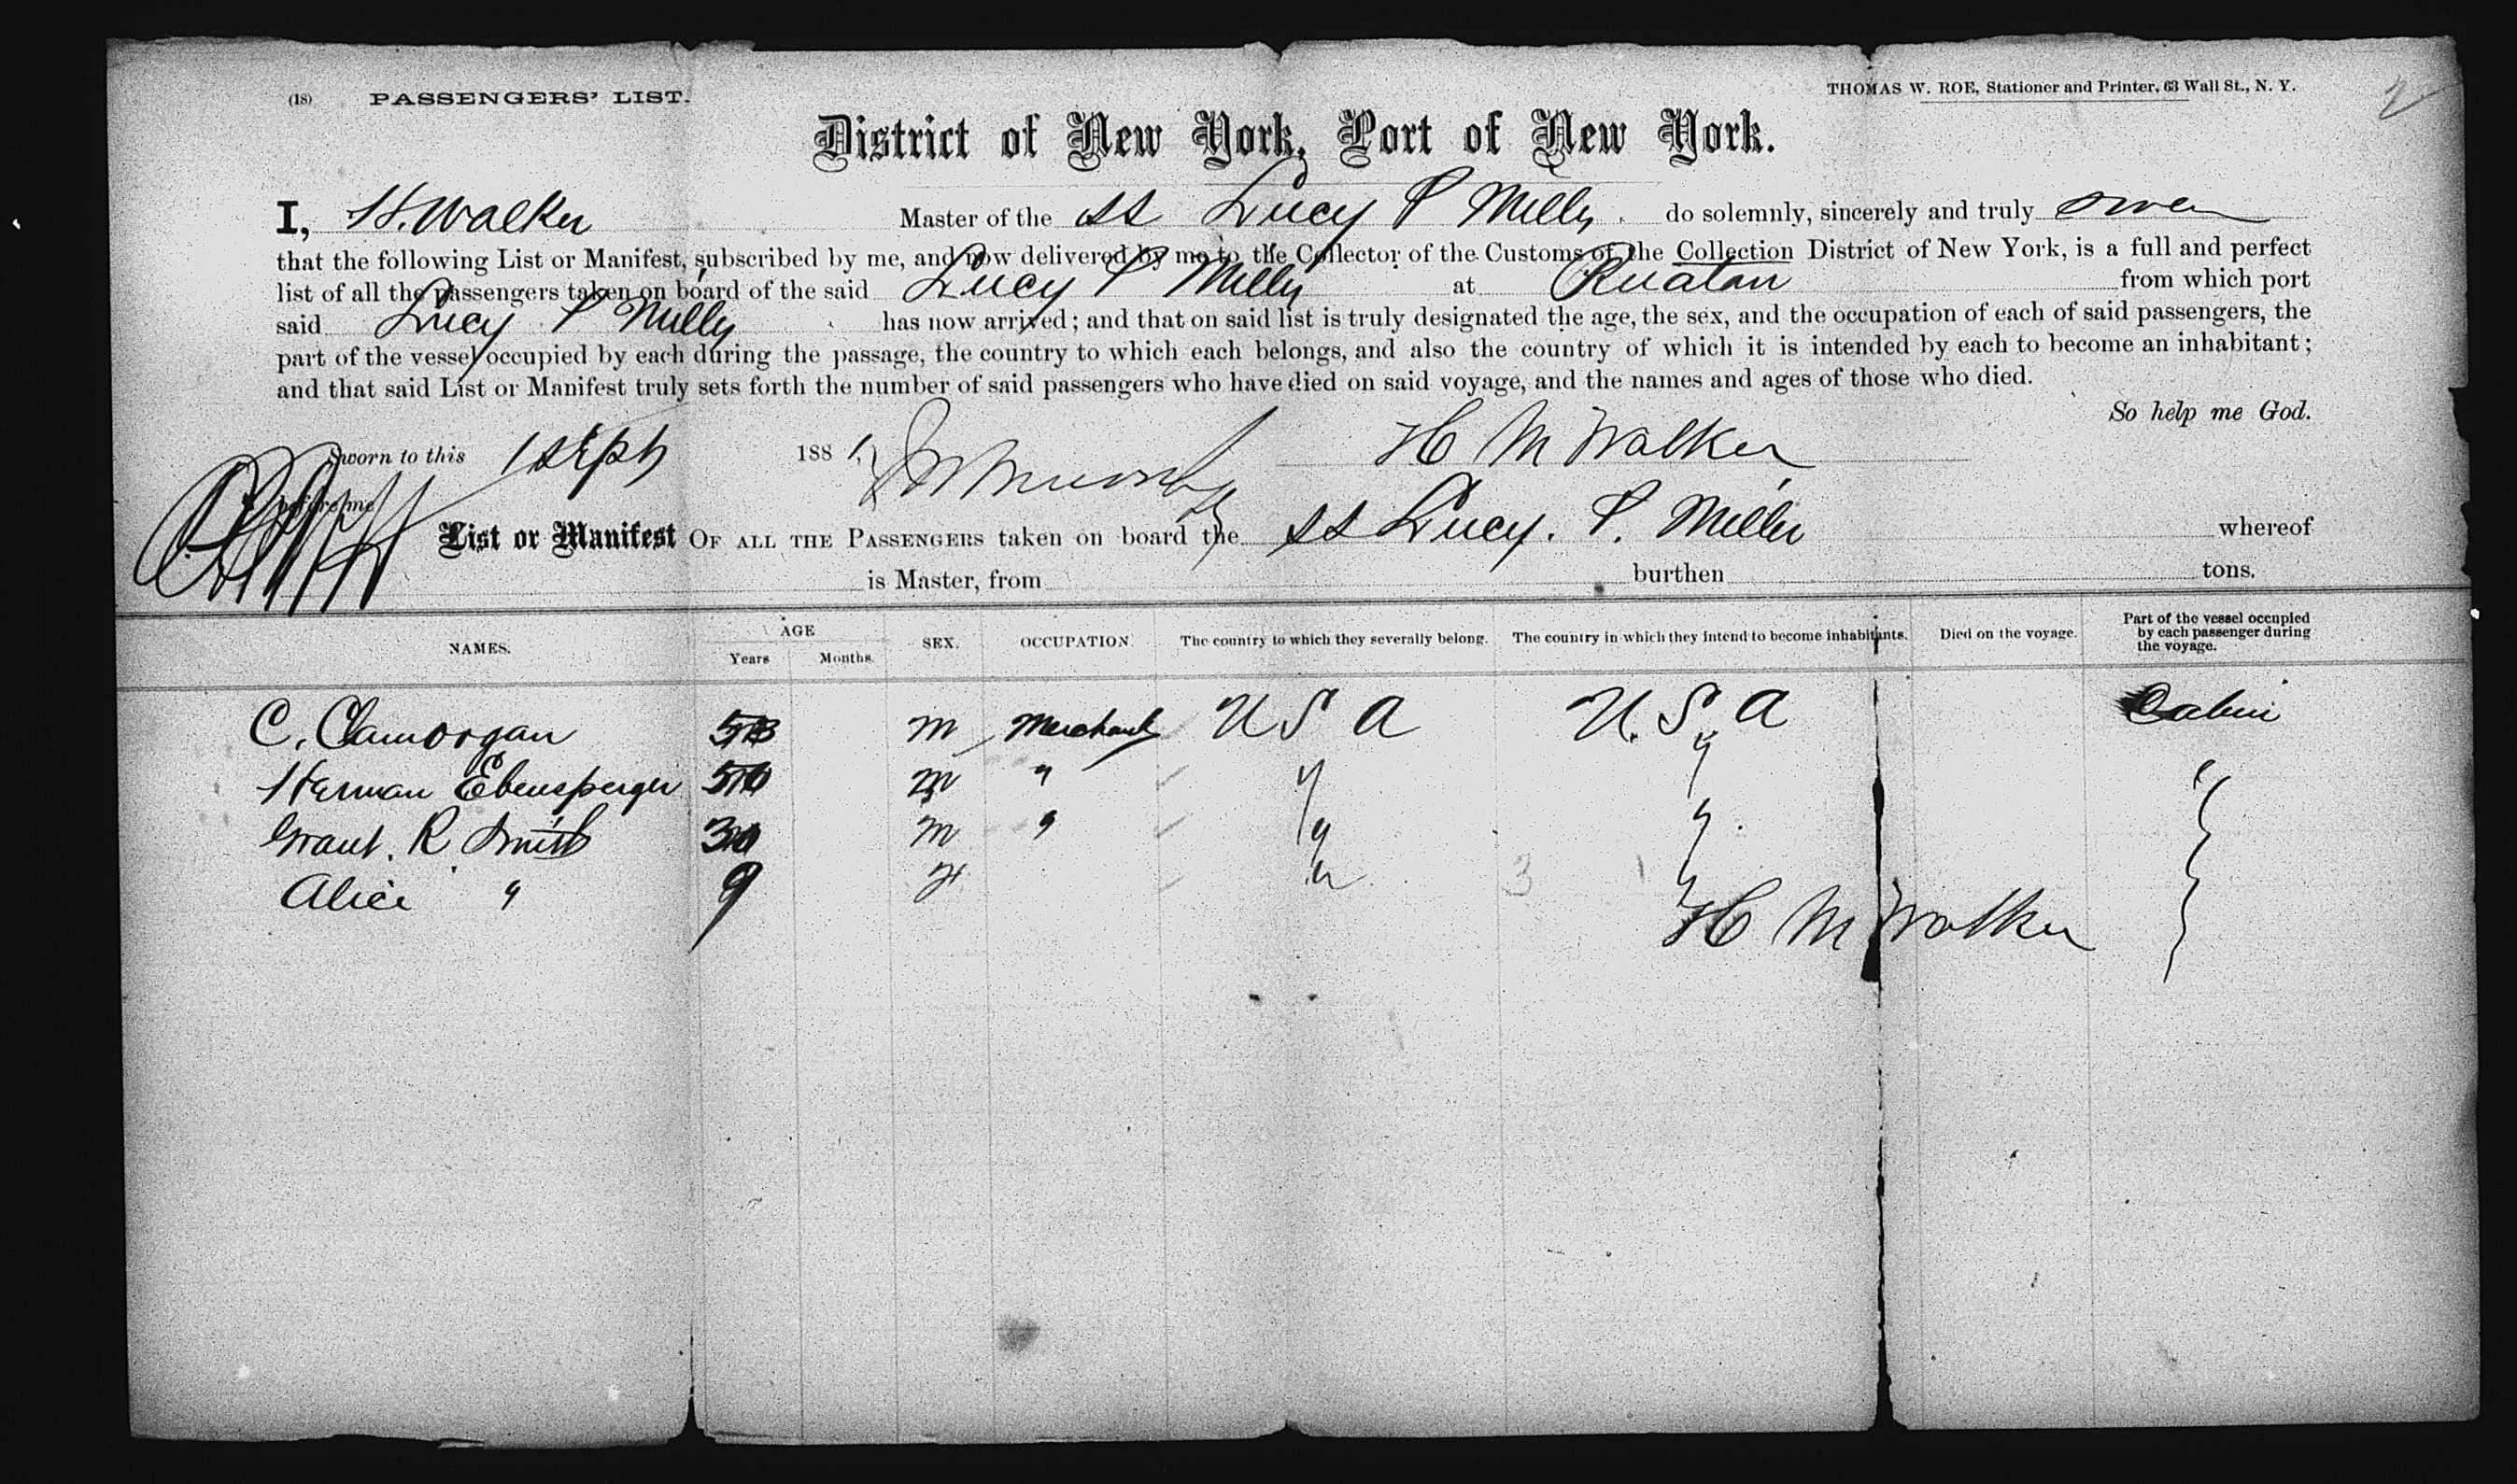 (18) PASSENGERS' LIST. THOMAS W. ROE, Stationer and Printer, 63 Wall St., N. Y. 2
District of New York, Port of New York.
I, H. Walker Master of the SS Lucy P Miller do solemnly, sincerely and truly swear
that the following List or Manifest, subscribed by me, and now delivered by me to the Collector of the Customs of the Collection District of New York, is a full and perfect
list of all the passengers taken on board of the said Lucy P Miller at Ruatan from which port
said Lucy P Miller has now arrived; and that on said list is truly designated the age, the sex, and the occupation of each of said passengers, the
part of the vessel occupied by each during the passage, the country to which each belongs, and also the country of which it is intended by each to become an inhabitant;
and that said List or Manifest truly sets forth the number of said passengers who have died on said voyage, and the names and ages of those who died.
So help me God.
Sworn to this 1 Sept 188 H M Walker
before me
List or Manifest OF ALL THE PASSENGERS taken on board the SS Lucy. P. Miller whereof
is Master, from burthen tons.
NAMES. AGE Years Months. SEX. OCCUPATION. The country to which they severally belong. The country in which they intend to become inhabitants. Died on the voyage. Part of the vessel occupied by each passenger during the voyage.
C. Clamorgan M Merchant U S A U. S. A Cabin
Herman Ebensperger M " " " "
Grant. R Smith M " " " "
Alice " 9 F " " "
3
H M Walker